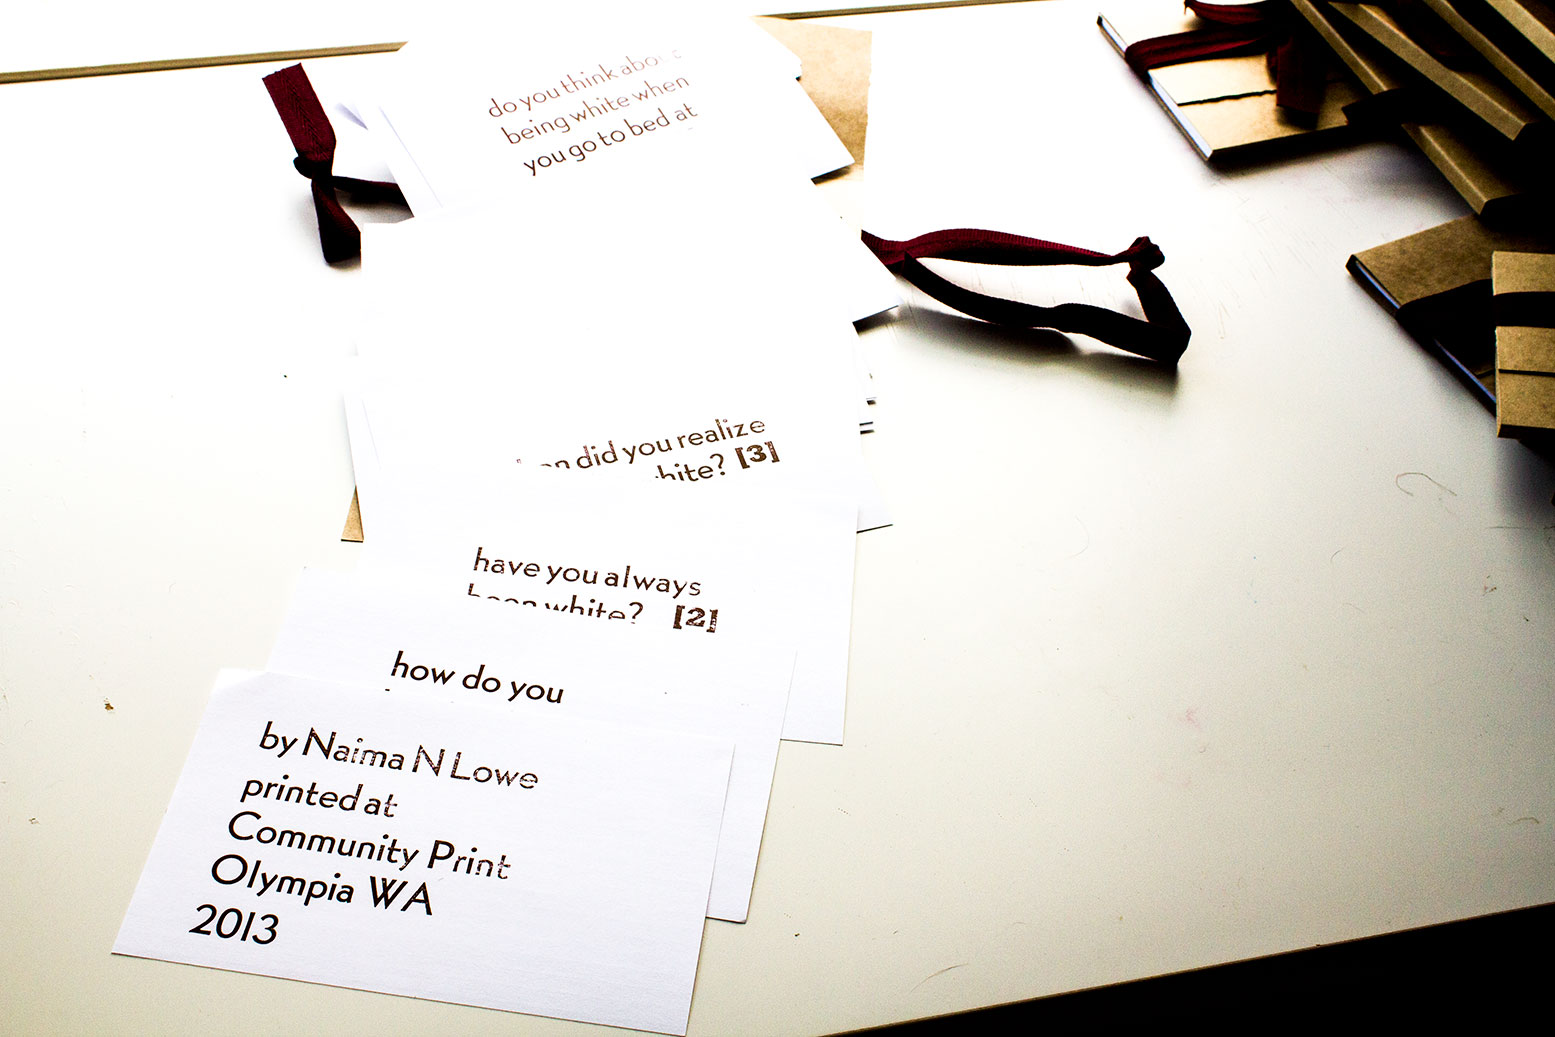 do you think about
being white when
you go to bed at
did you realize
white? [3]
have you always
been white? [2]
how do you
by Naima N Lowe
printed at
Community Print
Olympia WA
2013